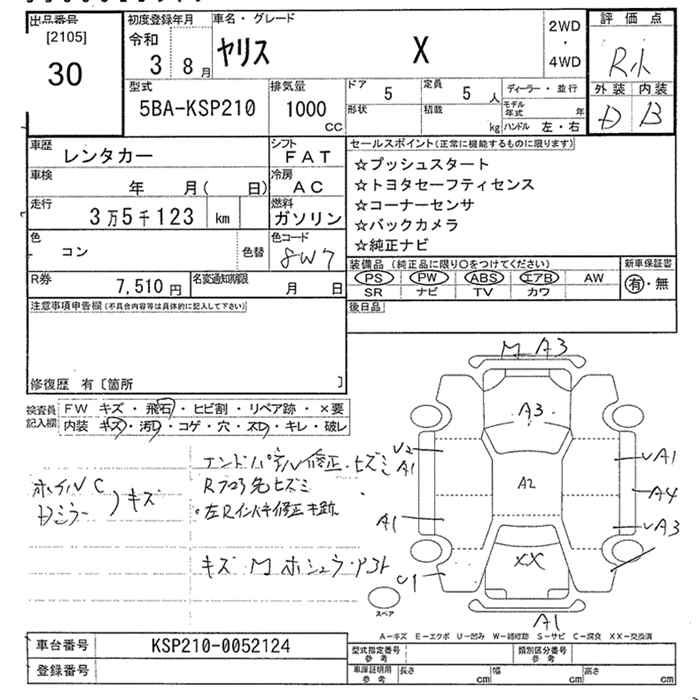 出品番号
[2105]
30
初度登録年月
令和
3 8月
車名・グレード
ヤリス X
2WD
・
4WD
評価点
外装 内装
D B
型式
5BA-KSP210
排気量
1000
CC
ドア 5
定員 5 人
形状
積載 kg
ディーラー・並行
モデル年式 年
ハンドル 左・右
車歴
レンタカー
シフト
FAT
車検
年 月( 日)
冷房
AC
走行
3万5千123 km
燃料
ガソリン
色
コン
色替
色コード
8W7
R券
7,510円
名変通知期限
月 日
セールスポイント(正常に機能するものに限ります)
☆プッシュスタート
☆トヨタセーフティセンス
☆コーナーセンサ
☆バックカメラ
☆純正ナビ
装備品(純正品に限り○をつけてください)
PS PW ABS エアB AW
SR ナビ TV カワ
新車保証書
有・無
後日品
注意事項申告欄(不具合内容等は具体的に記入して下さい)
修復歴 有〔箇所 〕
検査員記入欄
FW キズ・飛石・ヒビ割・リペア跡・×要
内装 キズ・汚レ・コゲ・穴・スレ・キレ・破レ
エンドパネル修正・ヒズミ
Rフロア先ヒズミ
・左Rインパネ修正キ跡
ホイルC
Dミラー
)キズ
キズ M ホシュラ・アト
M A3
A3
U2
A1
UA1
A2
A4
A1
UA3
XX
U1
A1
スペア
A-キズ E-エクボ U-凹み W-補修跡 S-サビ C-腐食 XX-交換済
車台番号
KSP210-0052124
登録番号
型式指定番号
参考
類別区分番号
参考
車庫証明用
参考
長さ cm
幅 cm
高さ cm